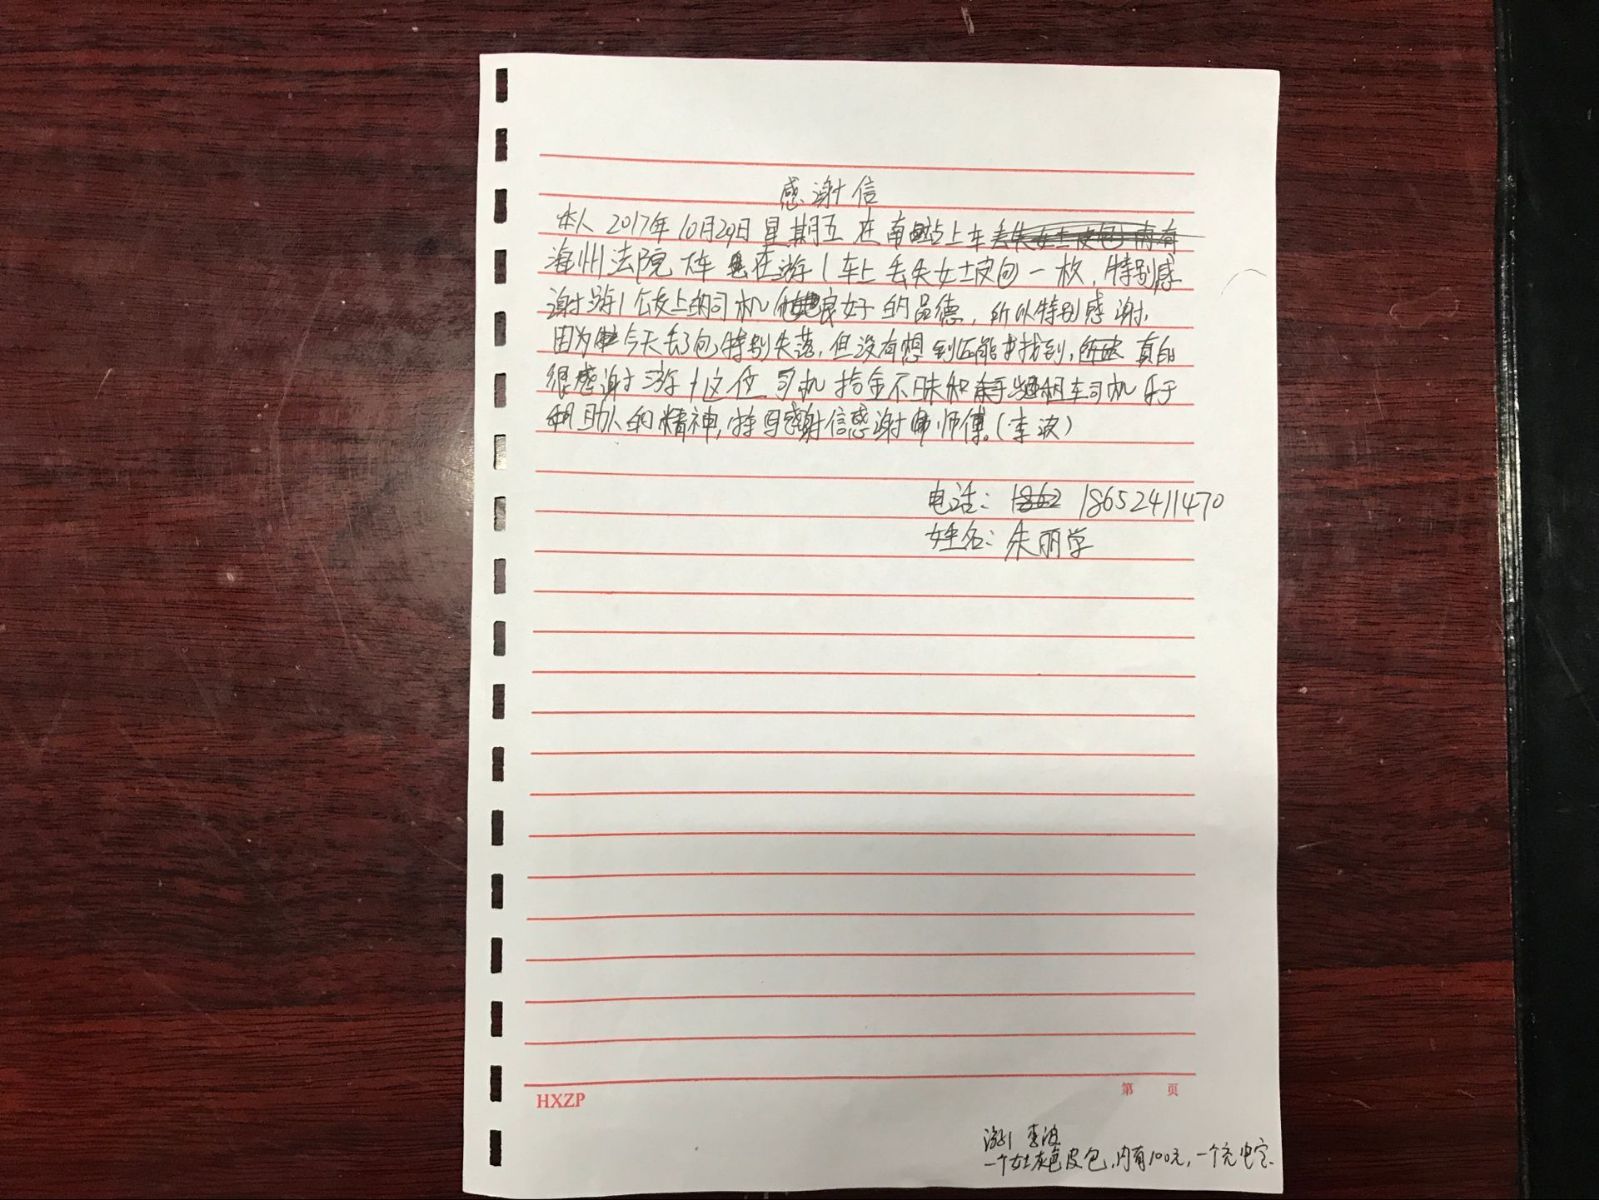 感谢信
本人2017年10月29日星期五在南站上车
海州法院下车 在游1车上丢失女士皮包一枚,特别感
谢游1公交上的司机 良好的品德,所以特别感谢.
因为 今天丢了包,特别失落,但没有想到还能找到, 真的
很感谢游1这位司机拾金不昧和 出租车司机乐于
助人的精神,特写感谢信感谢 师傅。(李波)
电话: 18652411470
姓名: 朱丽学
HXZP
第 页
游1 李波
一个女士灰色皮包,内有100元,一个充电宝.